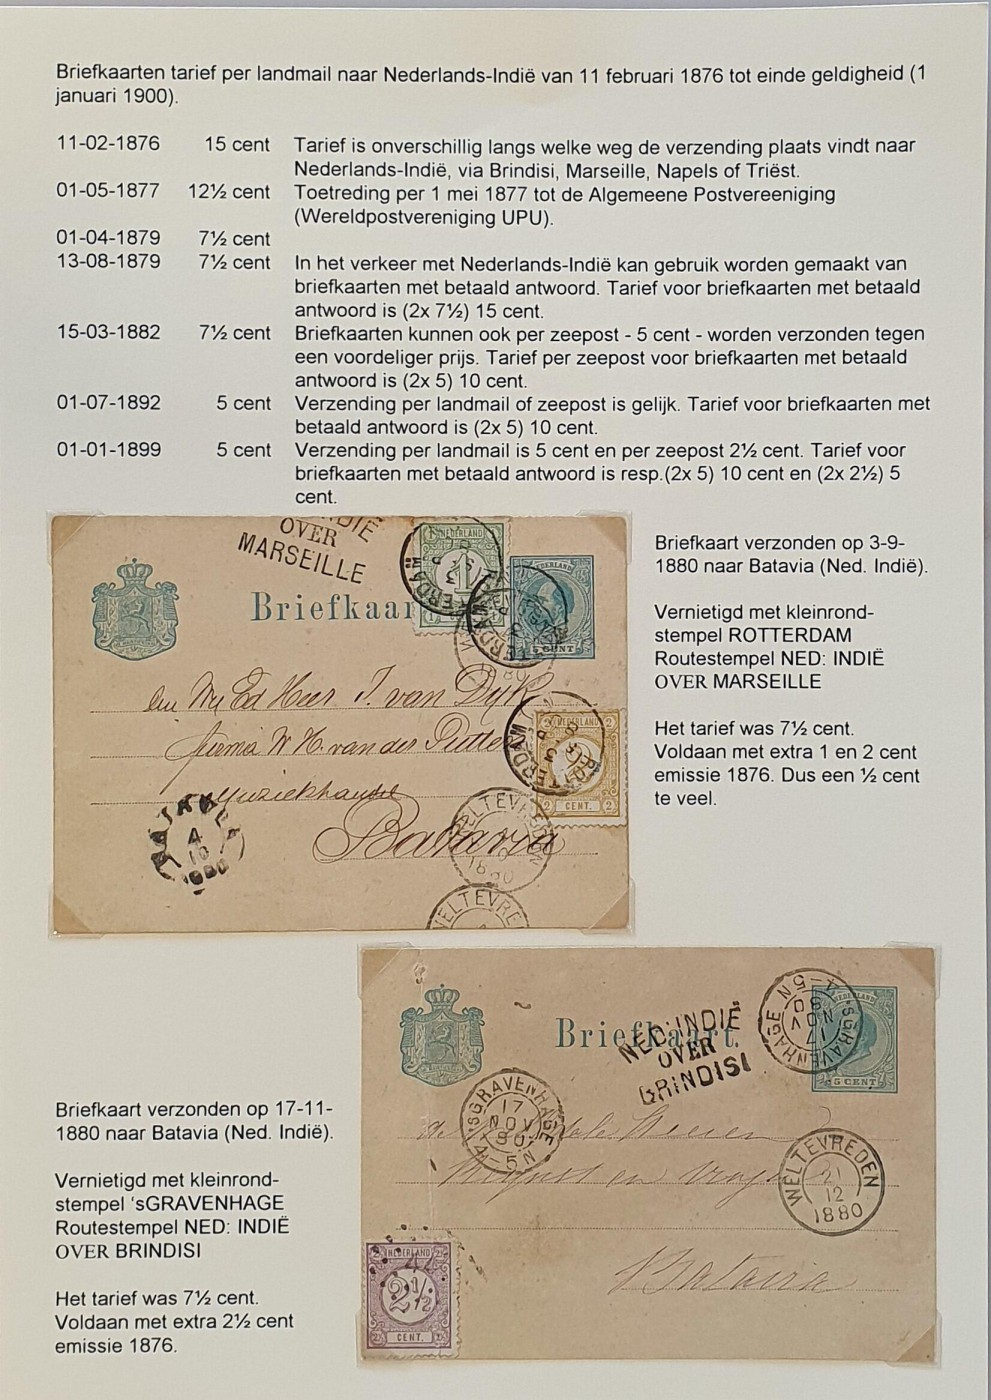 Briefkaarten tarief per landmail naar Nederlands-Indië van 11 februari 1876 tot einde geldigheid (1
januari 1900).
11-02-1876 15 cent Tarief is onverschillig langs welke weg de verzending plaats vindt naar
Nederlands-Indië, via Brindisi, Marseille, Napels of Triëst.
01-05-1877 12½ cent Toetreding per 1 mei 1877 tot de Algemeene Postvereeniging
(Wereldpostvereniging UPU).
01-04-1879 7½ cent
13-08-1879 7½ cent In het verkeer met Nederlands-Indië kan gebruik worden gemaakt van
briefkaarten met betaald antwoord. Tarief voor briefkaarten met betaald
antwoord is (2x 7½) 15 cent.
15-03-1882 7½ cent Briefkaarten kunnen ook per zeepost - 5 cent - worden verzonden tegen
een voordeliger prijs. Tarief per zeepost voor briefkaarten met betaald
antwoord is (2x 5) 10 cent.
01-07-1892 5 cent Verzending per landmail of zeepost is gelijk. Tarief voor briefkaarten met
betaald antwoord is (2x 5) 10 cent.
01-01-1899 5 cent Verzending per landmail is 5 cent en per zeepost 2½ cent. Tarief voor
briefkaarten met betaald antwoord is resp.(2x 5) 10 cent en (2x 2½) 5
cent.
INDIË
OVER
MARSEILLE
NEDERLAND
1
Briefkaar
5 CENT
J. van Dyk
firma W. H. van der Putte
Muziekhandel
Batavia
NEDERLAND
2 CENT.
ROTTERDAM
4
10
1880
WELTEVREDEN
1880
WELTEVRE
Briefkaart verzonden op 3-9-
1880 naar Batavia (Ned. Indië).
Vernietigd met kleinrond-
stempel ROTTERDAM
Routestempel NED: INDIË
OVER MARSEILLE
Het tarief was 7½ cent.
Voldaan met extra 1 en 2 cent
emissie 1876. Dus een ½ cent
te veel.
Briefkaart
NED: INDIË
OVER
BRINDISI
'SGRAVENHAGE
17
NOV
80
4-5N
NEDERLAND
5 CENT
'SGRAVENHAGE
17
NOV
80
4-5N
WELTEVREDEN
21
12
1880
Batavia
NEDERLAND
2½
CENT.
Briefkaart verzonden op 17-11-
1880 naar Batavia (Ned. Indië).
Vernietigd met kleinrond-
stempel 'sGRAVENHAGE
Routestempel NED: INDIË
OVER BRINDISI
Het tarief was 7½ cent.
Voldaan met extra 2½ cent
emissie 1876.